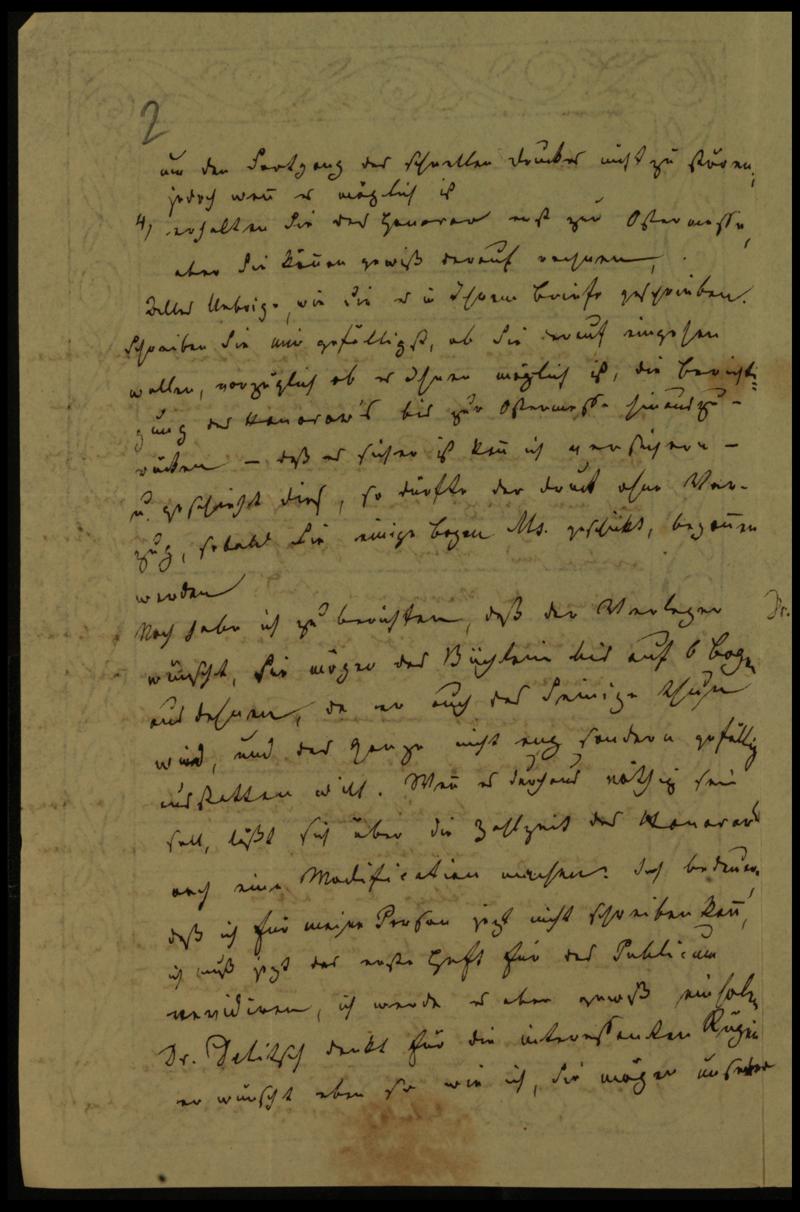 2
um den Fortgang des schnellen Druckes nicht zu stören,
jedoch wenn es möglich ist
4) erhalten Sie das Honorar erst zur Ostermesse,
aber Sie können gewiß darauf rechnen,
Alles Uebrige, wie Sie es in Ihrem Briefe geschrieben.
Schreiben Sie mir gefälligst, ob Sie darauf eingehen
wollen, vorzüglich ob es Ihnen möglich ist, die Berichti=
gung des Honorar's bis zur Ostermesse hinauszu-
rücken – daß es sicher ist kann ich versichern –
u. geschieht dies, so dürfte der Druck ohne Ver-
zug, sobald Sie einige Bogen Ms. geschickt, begonnen
werden
Noch habe ich zu berichten, daß der Verleger
wünscht, Sie mögen das Büchlein bis auf 6 Bogen
ausdehnen, da er auch das Seinige thun
wird, und das Ganze nicht eng sondern gefällig
ausstatten will. Wenn es durchaus nöthig sein
soll, läßt sich über die Zahlzeit des Honorars
noch eine Modification machen. Ich bedauer,
daß ich für meine Person jetzt nicht schreiben kann,
ich muß jetzt das erste Heft für das Publicum
revidiren, ich werde es aber gewiß
Dr. Delitzsch dankt für die interessanten
er wünscht eben so wie ich, Sie mögen unserer
Dr.